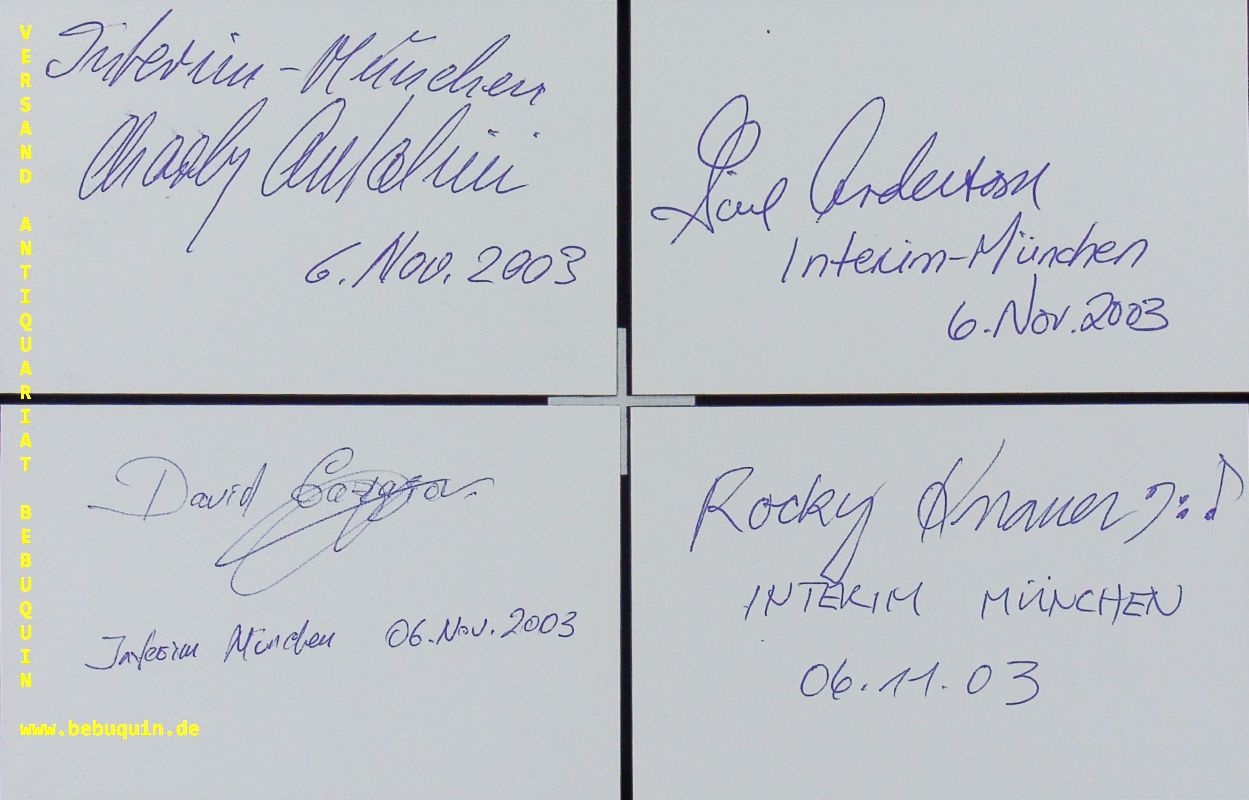 Interim-München
Charly Antolini
6. Nov. 2003
Anderson
Interim-München
6. Nov. 2003
David
Interim München 06. Nov. 2003
Rocky Knauer
INTERIM MÜNCHEN
06.11.03
VERSAND ANTIQUARIAT BEBUQUIN
www.bebuquin.de